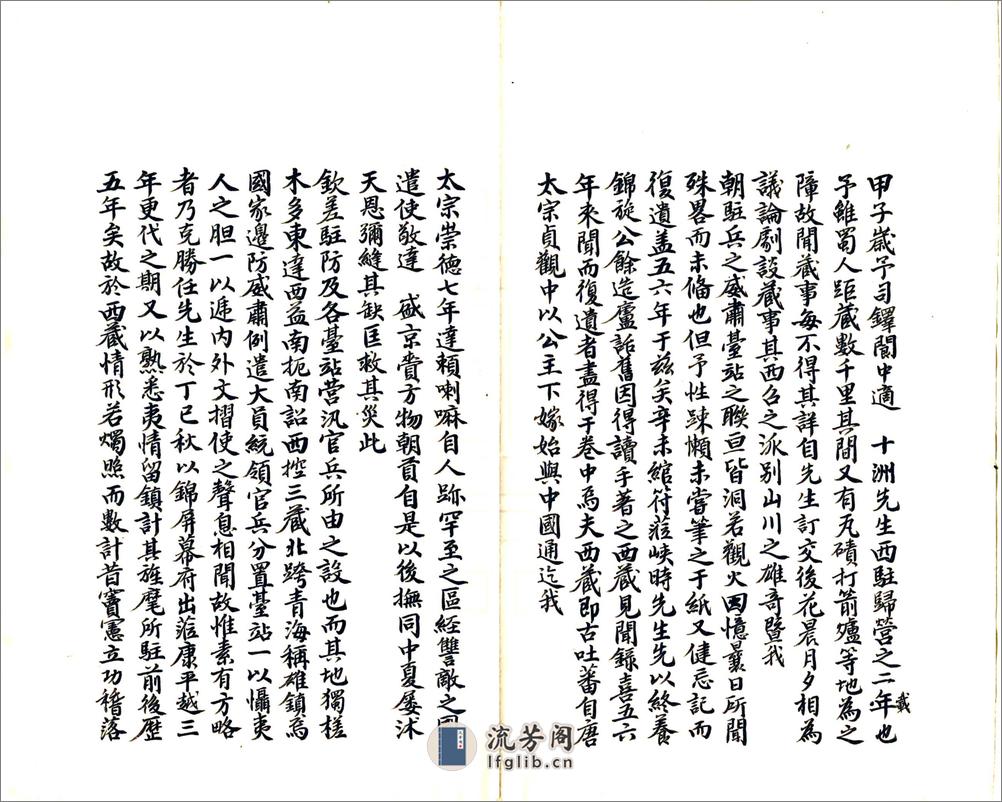 甲子歲予司鐸閬中適　十洲先生西駐歸營之二年也
載
予雖蜀人距藏數千里其間又有瓦磧打箭爐等地為之
障故聞藏事每不得其詳自先生訂交後花晨月夕相為
議論劇談藏事其西召之派別山川之雄奇暨我
朝駐兵之威肅臺站之聯亘皆洞若觀火因憶曩日所聞
殊畧而未偹也但予性踈懶未嘗筆之于紙又健忘記而
復遺盖五六年于茲矣辛未綰符蒞峽時先生先以終養
錦旋公餘造廬話舊因得讀手著之西藏見聞錄喜五六
年來聞而復遺者盡得于卷中焉夫西藏即古吐蕃自唐
太宗貞觀中以公主下嫁始與中國通迄我
太宗崇德七年達賴喇嘛自人跡罕至之區經讐敵之國
遣使敬達　盛京賫方物朝貢自是以後撫同中夏屡沐
天恩彌縫其缺匡救其災此
欽差駐防及各臺站营汛官兵所由之設也而其地獨槎
木多東達西益南扼南詔西控三藏北跨青海稱雄鎮焉
國家邊防威肅例遣大員統領官兵分置臺站一以懾夷
人之胆一以遞内外文摺使之聲息相聞故惟素有方略
者乃克勝任先生於丁巳秋以錦屏幕府出蒞康平越三
年更代之期又以熟悉夷情留鎮計其旌麾所駐前後歷
五年矣故於西藏情形若燭照而數計昔竇憲立功稽落
流芳阁
lfglib.cn